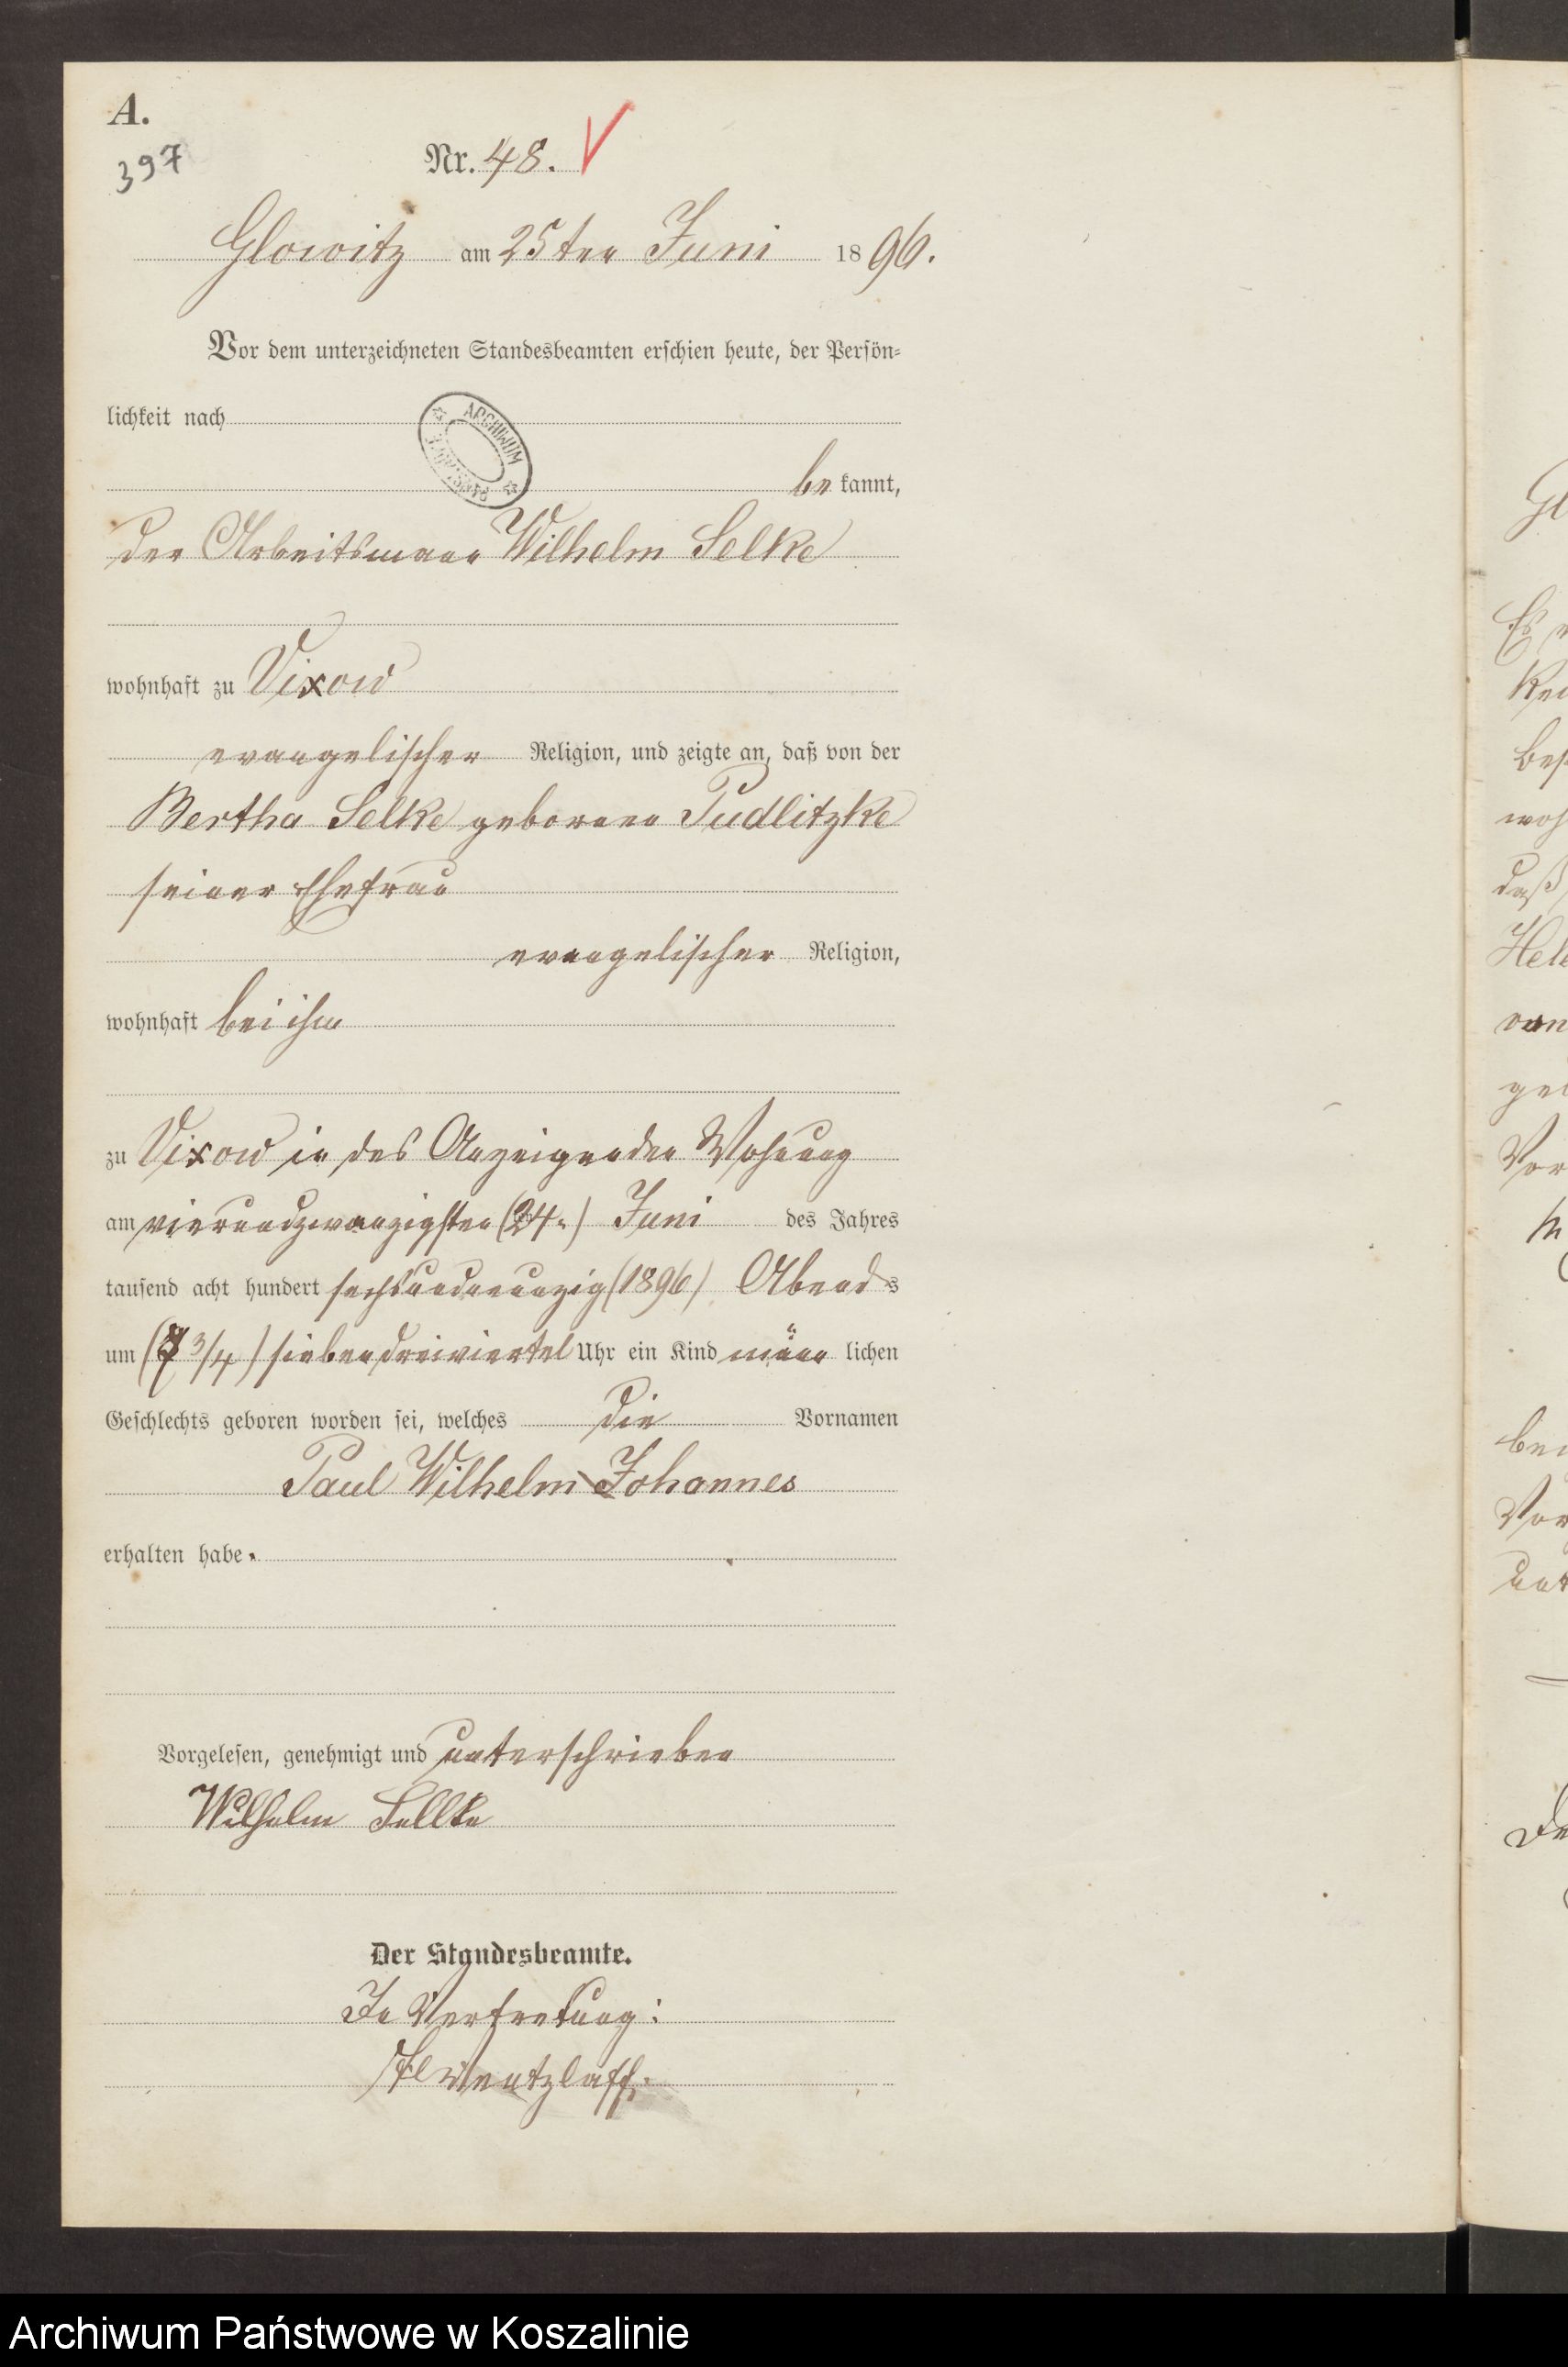 A.
397
Nr. 48.
Glowitz am 25ten Juni 1896.
Vor dem unterzeichneten Standesbeamten erschien heute, der Persön-
lichkeit nach
ARCHIWUM
be kannt,
der Arbeitsmann Wilhelm Selke
wohnhaft zu Vixow
evangelischer Religion, und zeigte an, daß von der
Bertha Selke geborenen Pudlitzke
seiner Ehefrau
evangelischer Religion,
wohnhaft bei ihm
zu Vixow in des Anzeigenden Wohnung
am vierundzwanzigsten (24.) Juni des Jahres
tausend acht hundert sechsundneunzig (1896) Abends
um (7 3/4) siebendreiviertel Uhr ein Kind männ lichen
Geschlechts geboren worden sei, welches die Vornamen
Paul Wilhelm Johannes
erhalten habe.
Vorgelesen, genehmigt und unterschrieben
Wilhelm Sellke
Der Standesbeamte.
In Vertretung:
Wentzlaff.
Archiwum Państwowe w Koszalinie